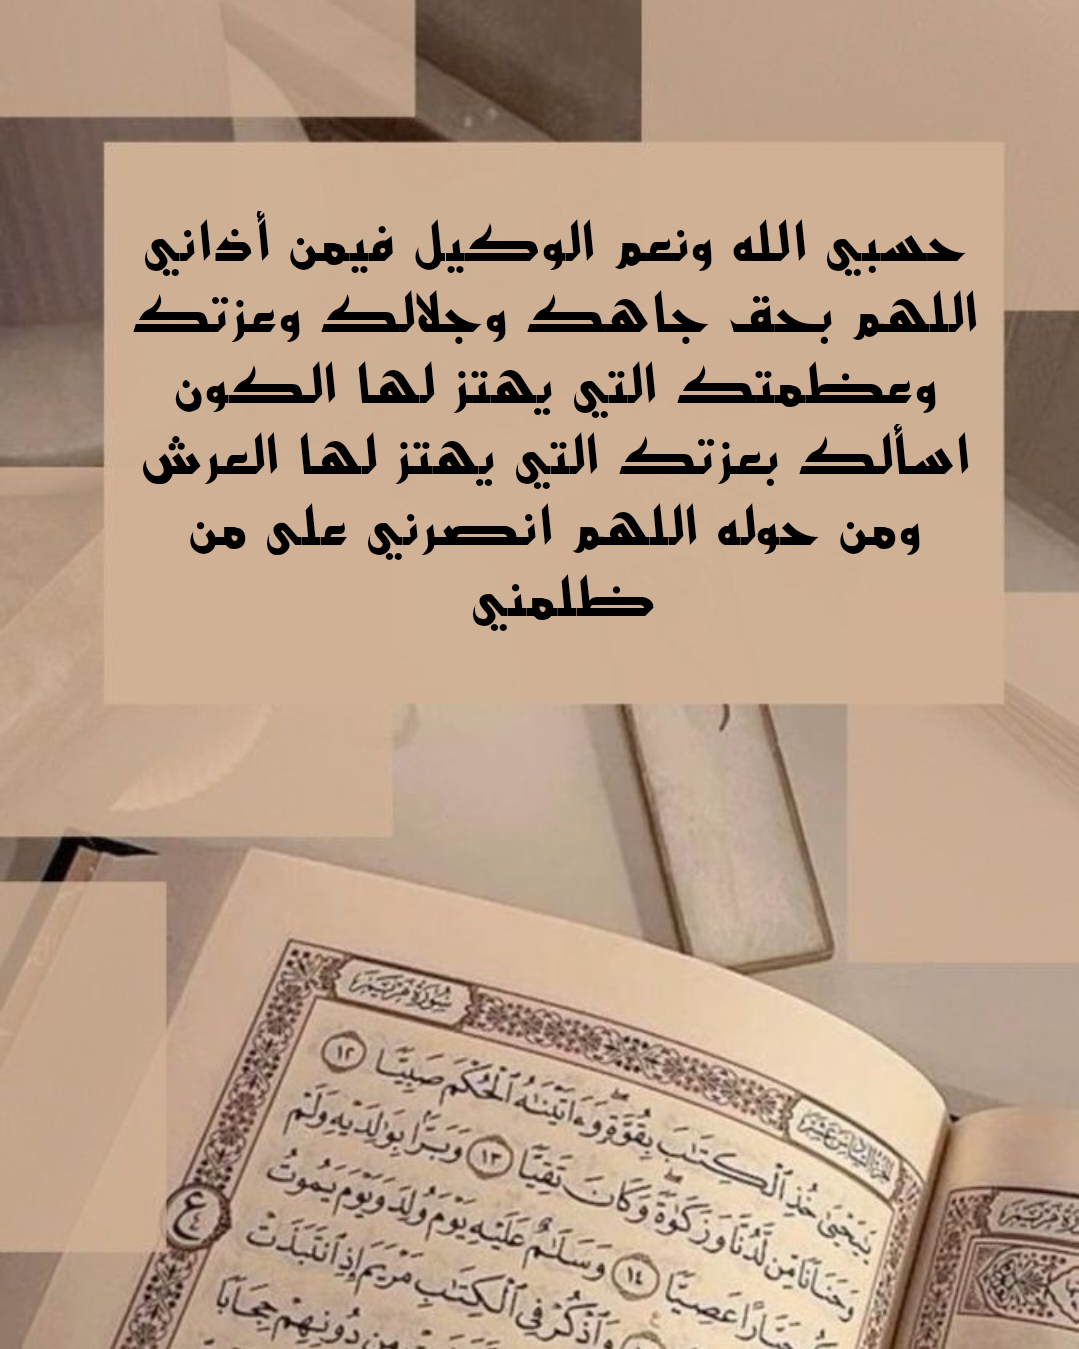 حسبي الله ونعم الوكيل فيمن أذاني
اللهم بحق جاهك وجلالك وعزتك
وعظمتك التي يهتز لها الكون
اسألك بعزتك التي يهتز لها العرش
ومن حوله اللهم انصرني على من
ظلمني
سُورَةُ مَرْيَمَ
الجزء السادس عشر
يَٰيَحْيَىٰ خُذِ ٱلْكِتَٰبَ بِقُوَّةٍ ۖ وَءَاتَيْنَٰهُ ٱلْحُكْمَ صَبِيًّا ١٢
وَحَنَانًا مِّن لَّدُنَّا وَزَكَوٰةً ۖ وَكَانَ تَقِيًّا ١٣ وَبَرًّۢا بِوَٰلِدَيْهِ وَلَمْ
جَبَّارًا عَصِيًّا ١٤ وَسَلَٰمٌ عَلَيْهِ يَوْمَ وُلِدَ وَيَوْمَ يَمُوتُ
وَٱذْكُرْ فِى ٱلْكِتَٰبِ مَرْيَمَ إِذِ ٱنتَبَذَتْ
مِن دُونِهِمْ حِجَابًا
ع